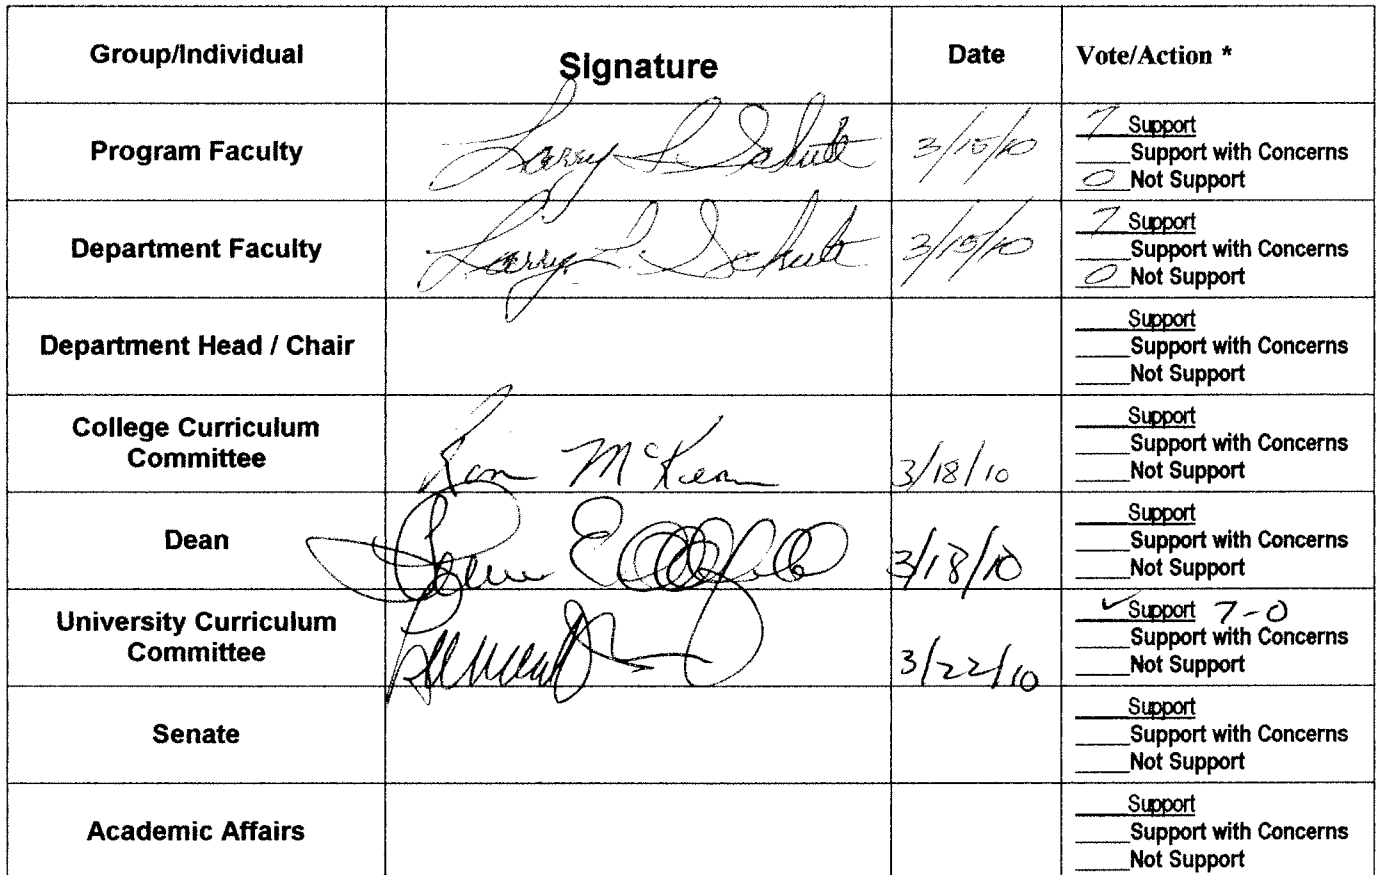 Group/Individual Signature Date Vote/Action *
Program Faculty Larry L. Schult 3/15/10 7 Support
Support with Concerns
0 Not Support
Department Faculty Larry L. Schult 3/15/10 7 Support
Support with Concerns
0 Not Support
Department Head / Chair Support
Support with Concerns
Not Support
College Curriculum
Committee McKean 3/18/10 Support
Support with Concerns
Not Support
Dean 3/18/10 Support
Support with Concerns
Not Support
University Curriculum
Committee 3/22/10 ✓ Support 7-0
Support with Concerns
Not Support
Senate Support
Support with Concerns
Not Support
Academic Affairs Support
Support with Concerns
Not Support